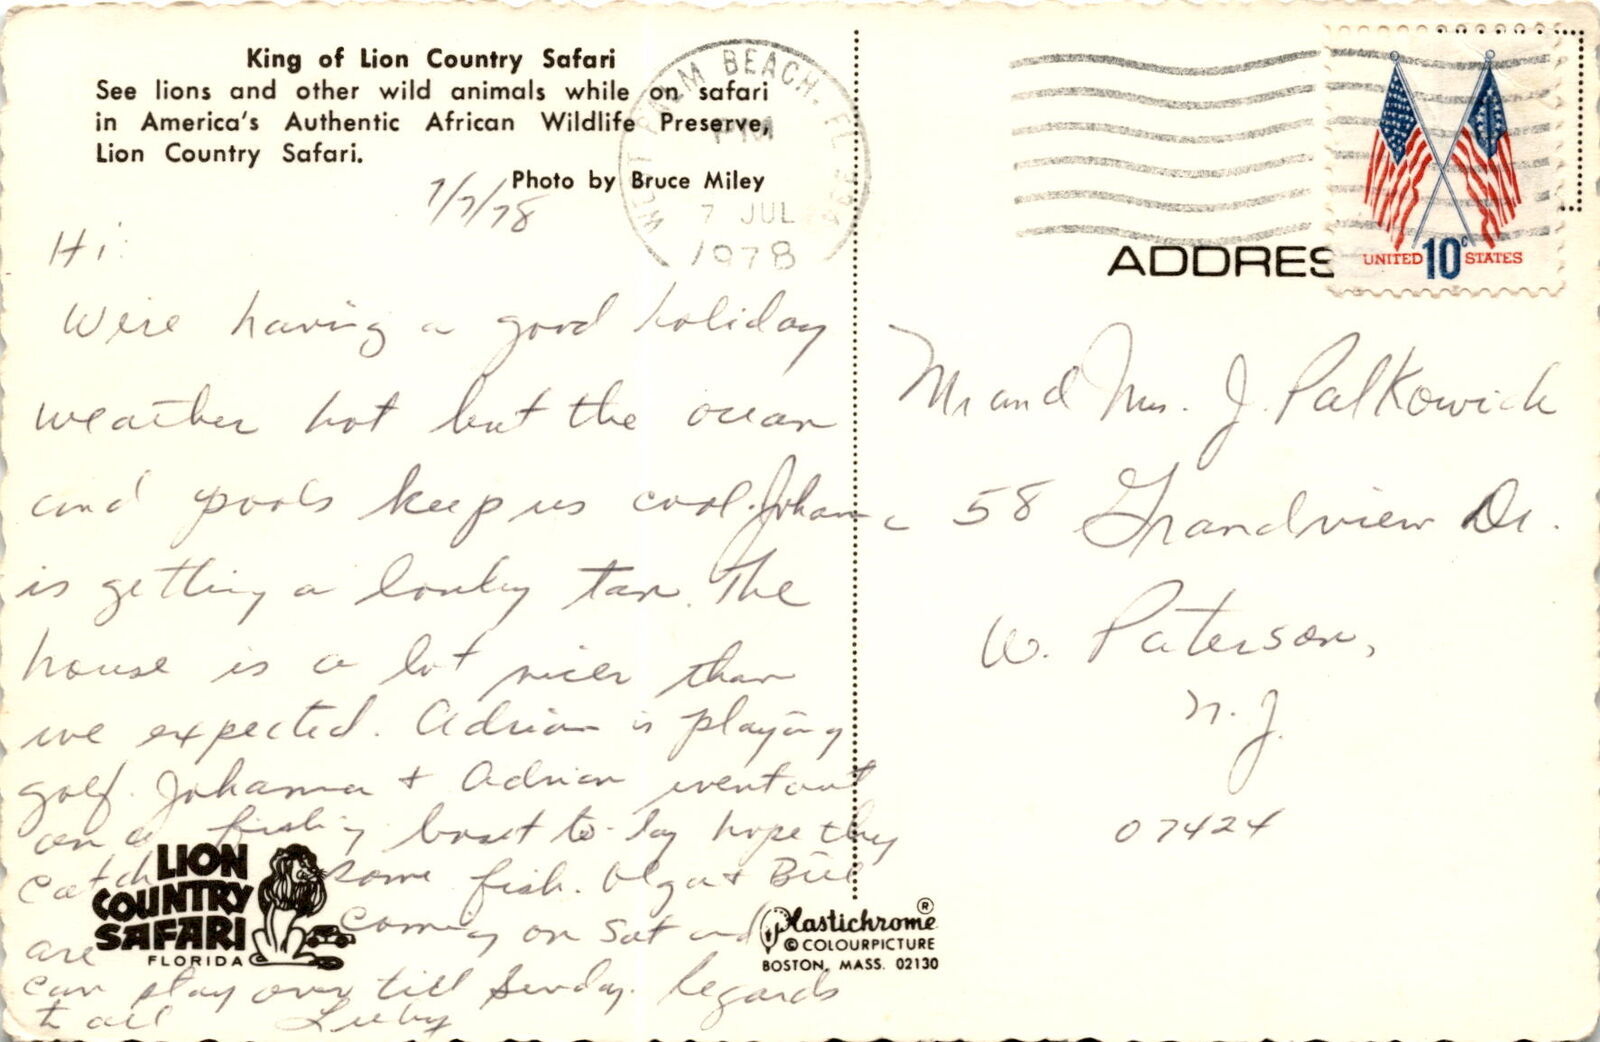 King of Lion Country Safari
See lions and other wild animals while on safari
in America's Authentic African Wildlife Preserve,
Lion Country Safari.
Photo by Bruce Miley
7/7/78
Hi:
We're having a good holiday
weather hot but the ocean
and pools keep us cool. Johanna
is getting a lovely tan. The
house is a lot nicer than
we expected. Adrian is playing
golf. Johanna + Adrian went out
on a fishing boat to-day hope they
catch some fish. Olga + Bill
are coming on Sat and
can stay over till Sunday. Regards
to all
LION
COUNTRY
SAFARI
FLORIDA
Plastichrome ®
© COLOURPICTURE
BOSTON, MASS. 02130
WEST PALM BEACH, FL
PM
7 JUL
1978
UNITED 10c STATES
ADDRES
Mr and Mrs. J. Palkowich
58 Grandview Dr.
W. Paterson,
N.J.
07424